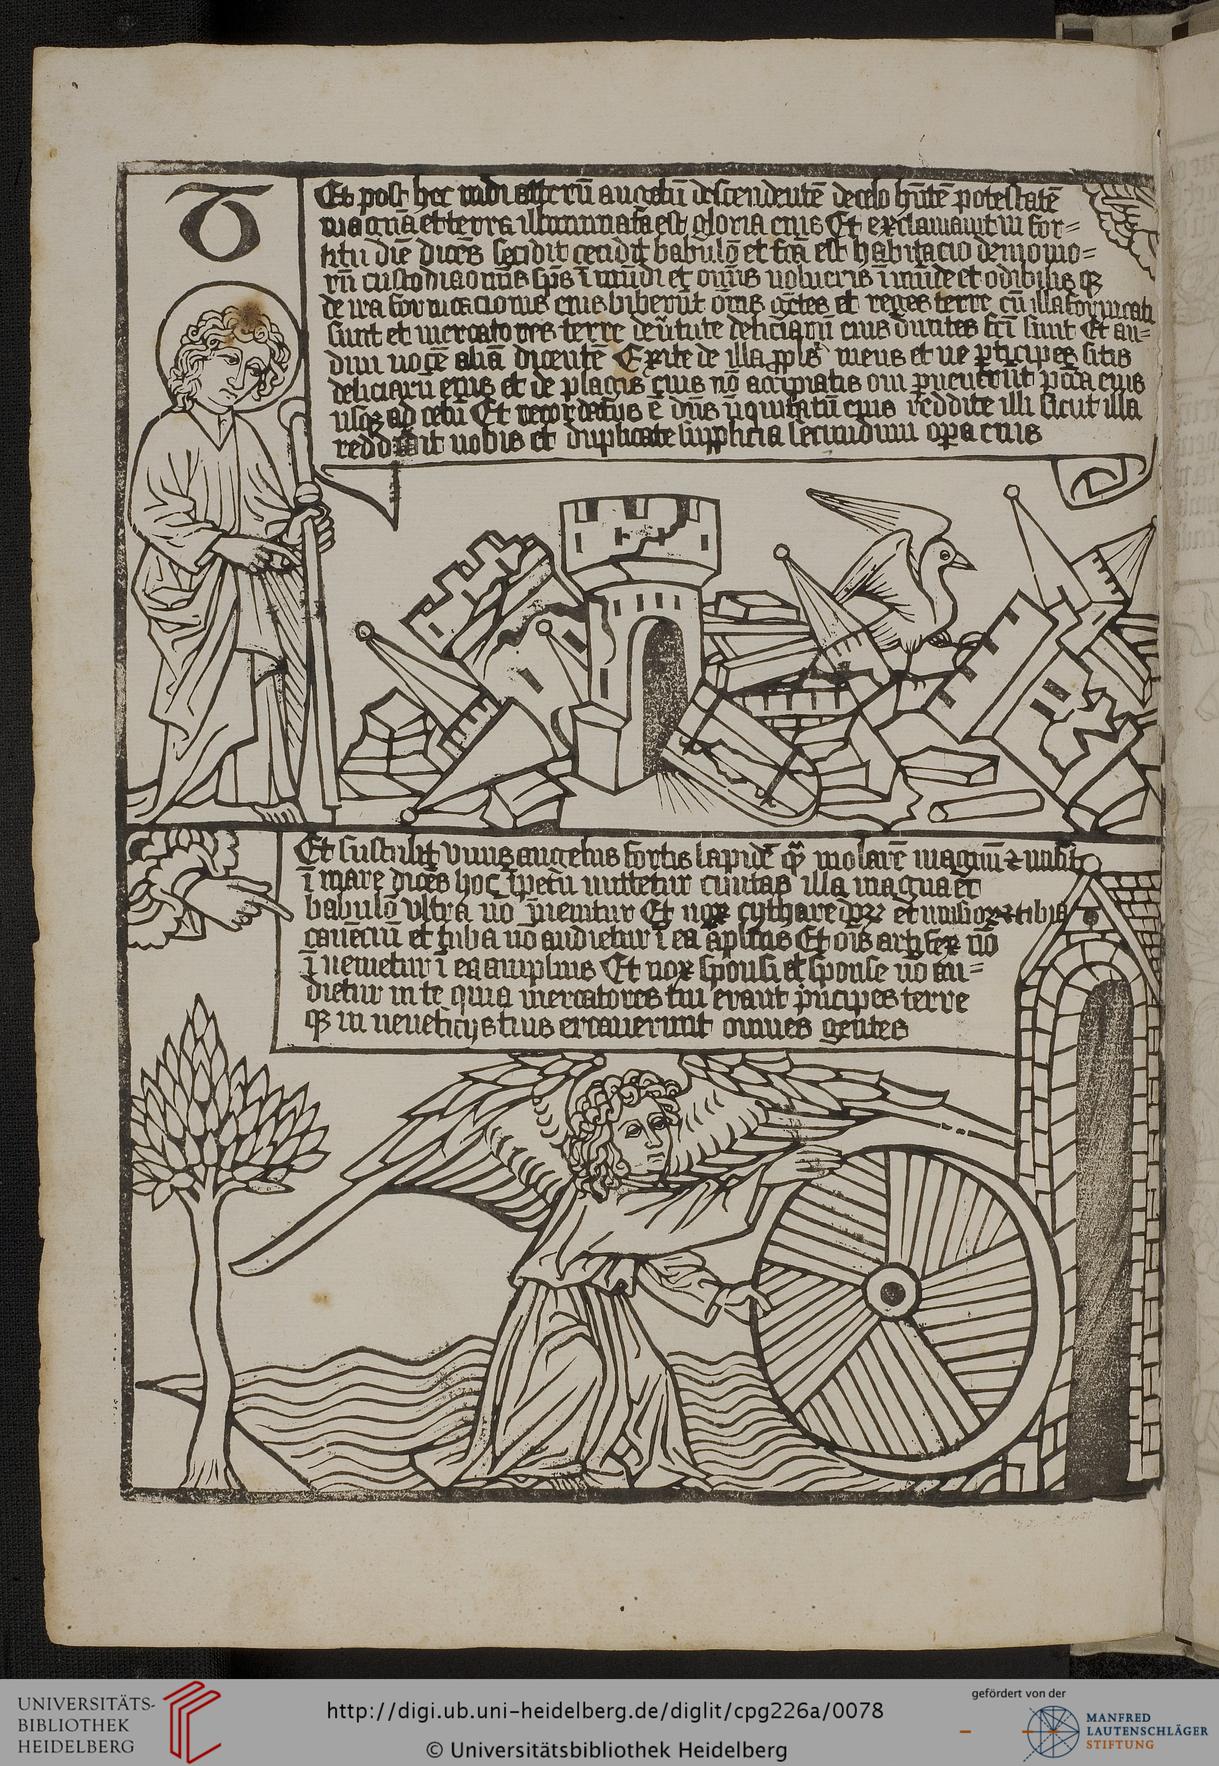 Et post hec vidi alterū angelū descendentē de celo hñtē potestatē
magnā et terra illuminata est gloria eius Et exclamauit in for=
titu dīe dicēs cecidit cecidit babulō et fcā est habitacio demonio=
rū custodia omnīs sp̄s ī mūdi et omīs uolucris ī mūde et odibilis
de ira fornicacionis eius biberūt om̄s gētes et reges terre cū illa fornicati
sunt et mercatores terre de ūtute deliciarū eius diuites fcī sunt Et au=
diui uocē aliā dicentē Exite de illa pp̄ls meus et ne ꝑticipes sitis
deliciarū eius et de plagis eius nō accipiatis ꝑuenerūt pctā eius
usqꝫ ad celū Et recordatus ē dn̄s īiquitatū eius reddite illi sicut illa
reddidit uobis et duplicate supplicia secundum oꝑa eius
Et sustulit vnus angelus fortis lapidē molarē magnū ⁊ misit
ī mare dicēs hoc īpetu mittetur ciuitas illa magna et
babulō vltra nō īuenitur Et uox cytharedoꝝ et musicoꝝ ⁊ tibia
canēciū et tuba nō audietur ī ea āplius Et oīs artifex nō
īuenietur ī ea amplius Et uox sponsi et sponse nō au=
dietur in te quia mercatores tui erant pͥncipes terre
in ueneficijs tuis errauerunt omnes gentes
UNIVERSITÄTS-
BIBLIOTHEK
HEIDELBERG
http://digi.ub.uni-heidelberg.de/diglit/cpg226a/0078
© Universitätsbibliothek Heidelberg
gefördert von der
MANFRED
LAUTENSCHLÄGER
STIFTUNG